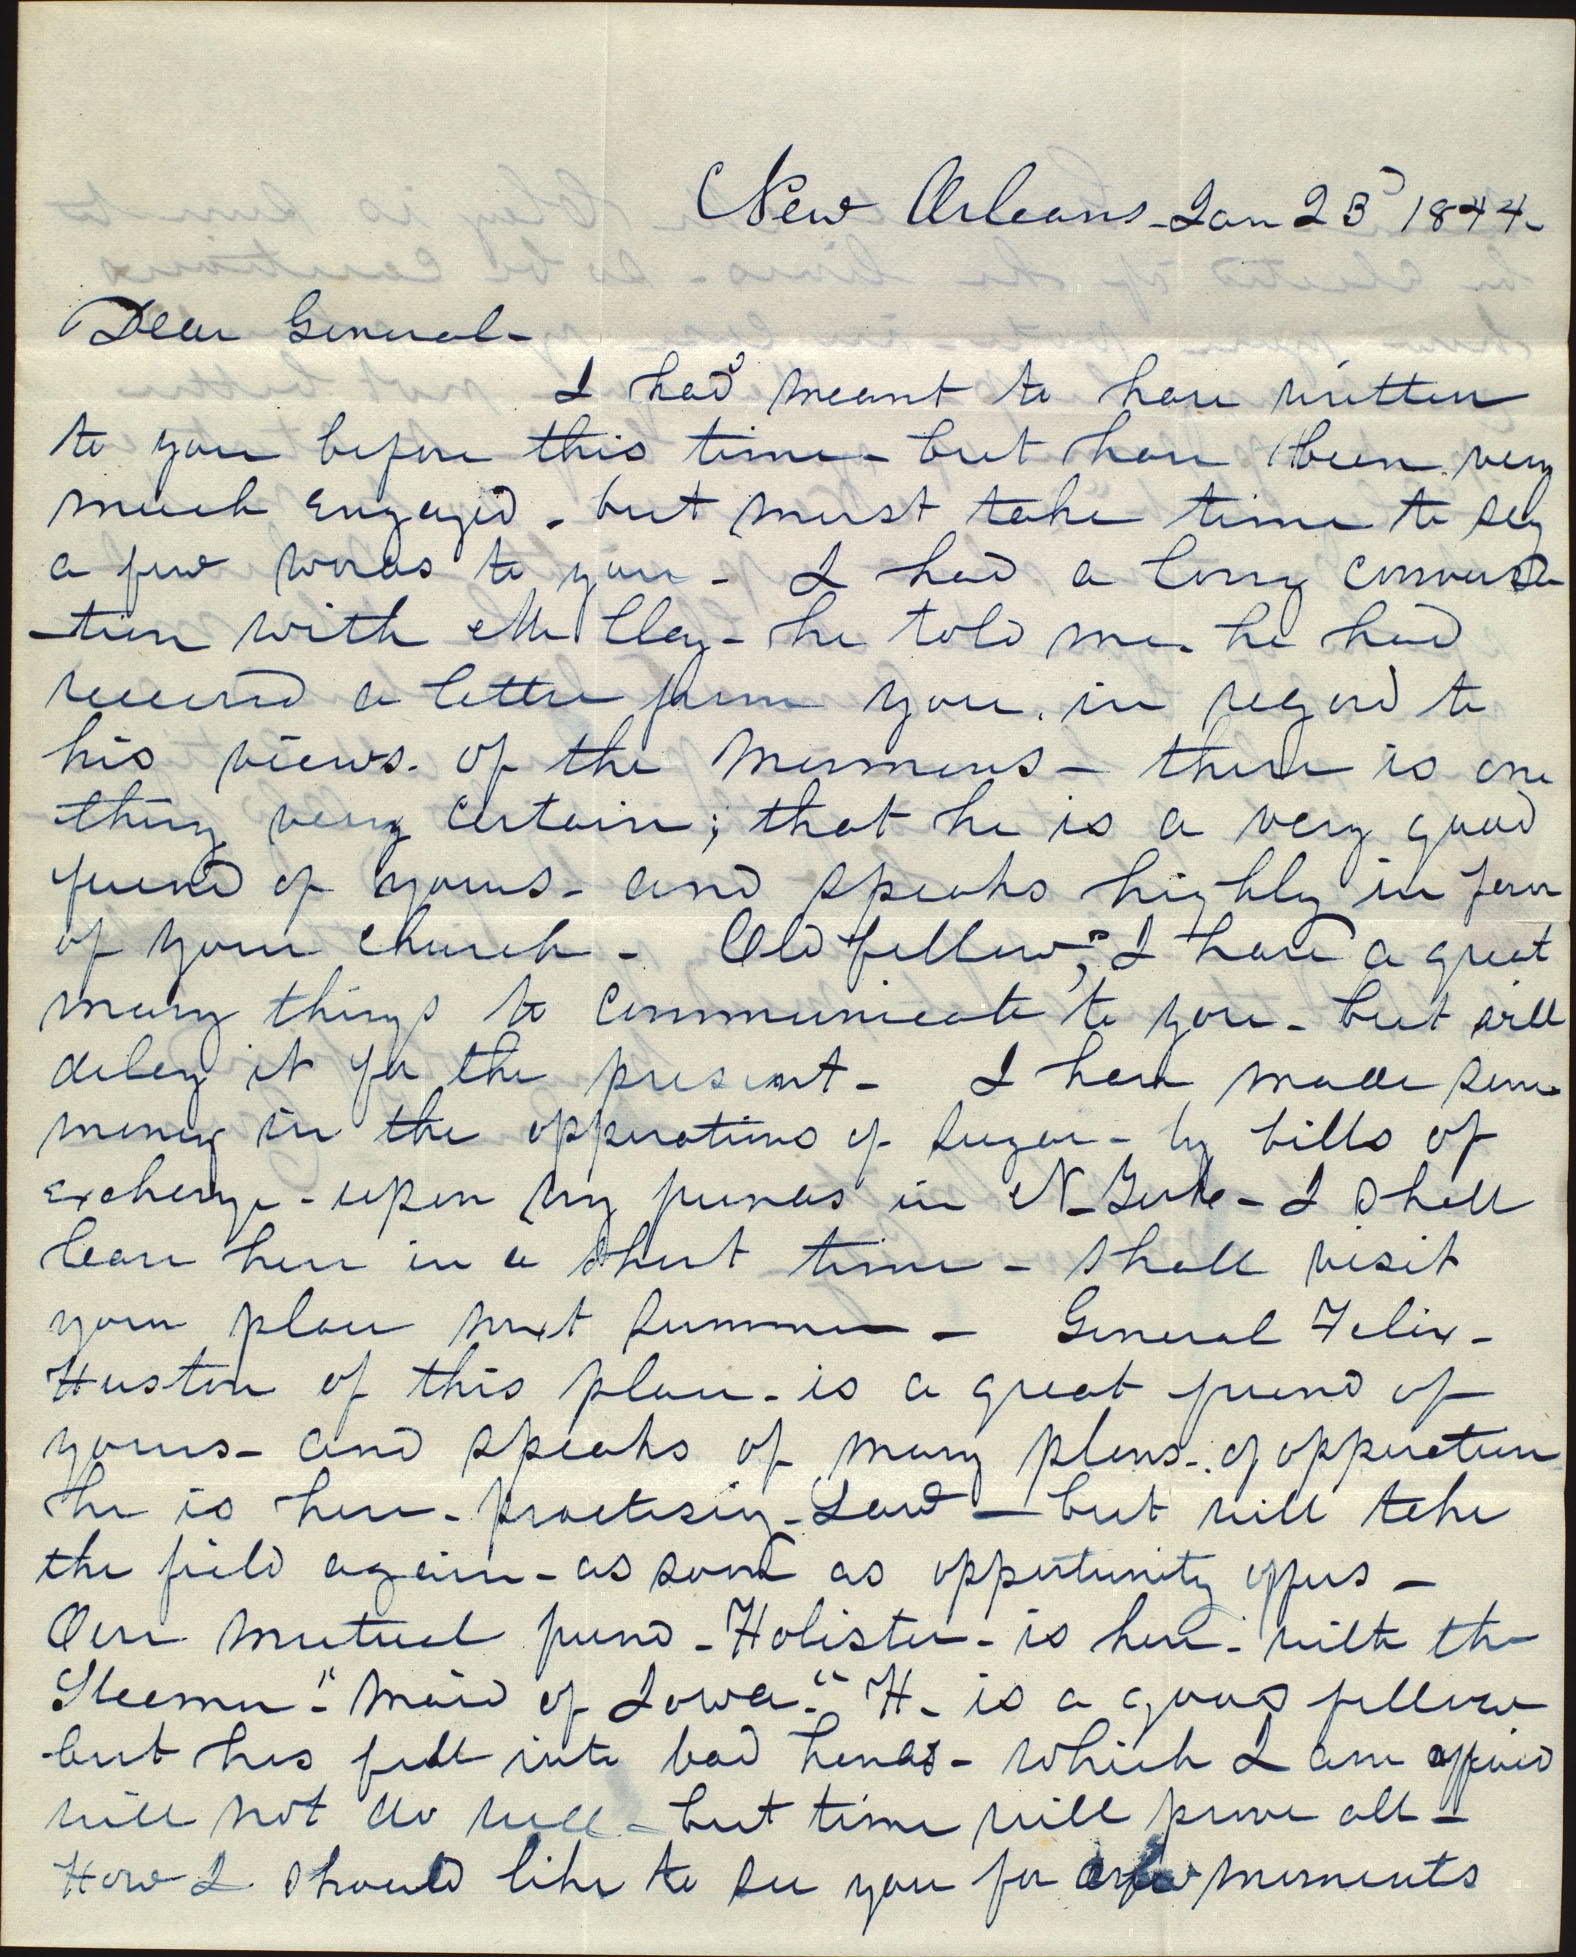 New Orleans - Jan 23d 1844 -
Dear General -
I had meant to have written
to you before this time - but have been very
much engaged - but must take time to say
a few words to you - I had a long conversa-
-tion with Mr Clay - he told me he had
received a letter from you, in regard to
his views of the Mormons - there is one
thing very certain; that he is a very good
friend of yours - and speaks highly in favor
of your church - Old fellow, I have a great
many things to communicate to you - but will
delay it for the present - I have made some
money in the opperations of sugar - by bills of
exchange - upon my funds in N - York - I shall
leave here in a short time - shall visit
your place next summer - General Felix -
Huston of this place - is a great friend of
yours - and speaks of many plans - of opperation
he is here - practising - Law - but will take
the field again - as soon as oppertunity offers -
Our mutual friend - Holister - is here - with the
Steemer - "Maid of Iowa -" H - is a good fellow
but has fell into bad hands - which I am affraid
will not do well - but time will prove all -
How I should like to see you for a few moments